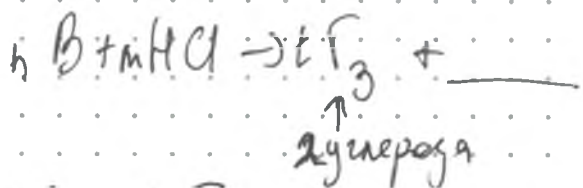 n B + mHCl → i Г₃ + ____
↑
2 углерода